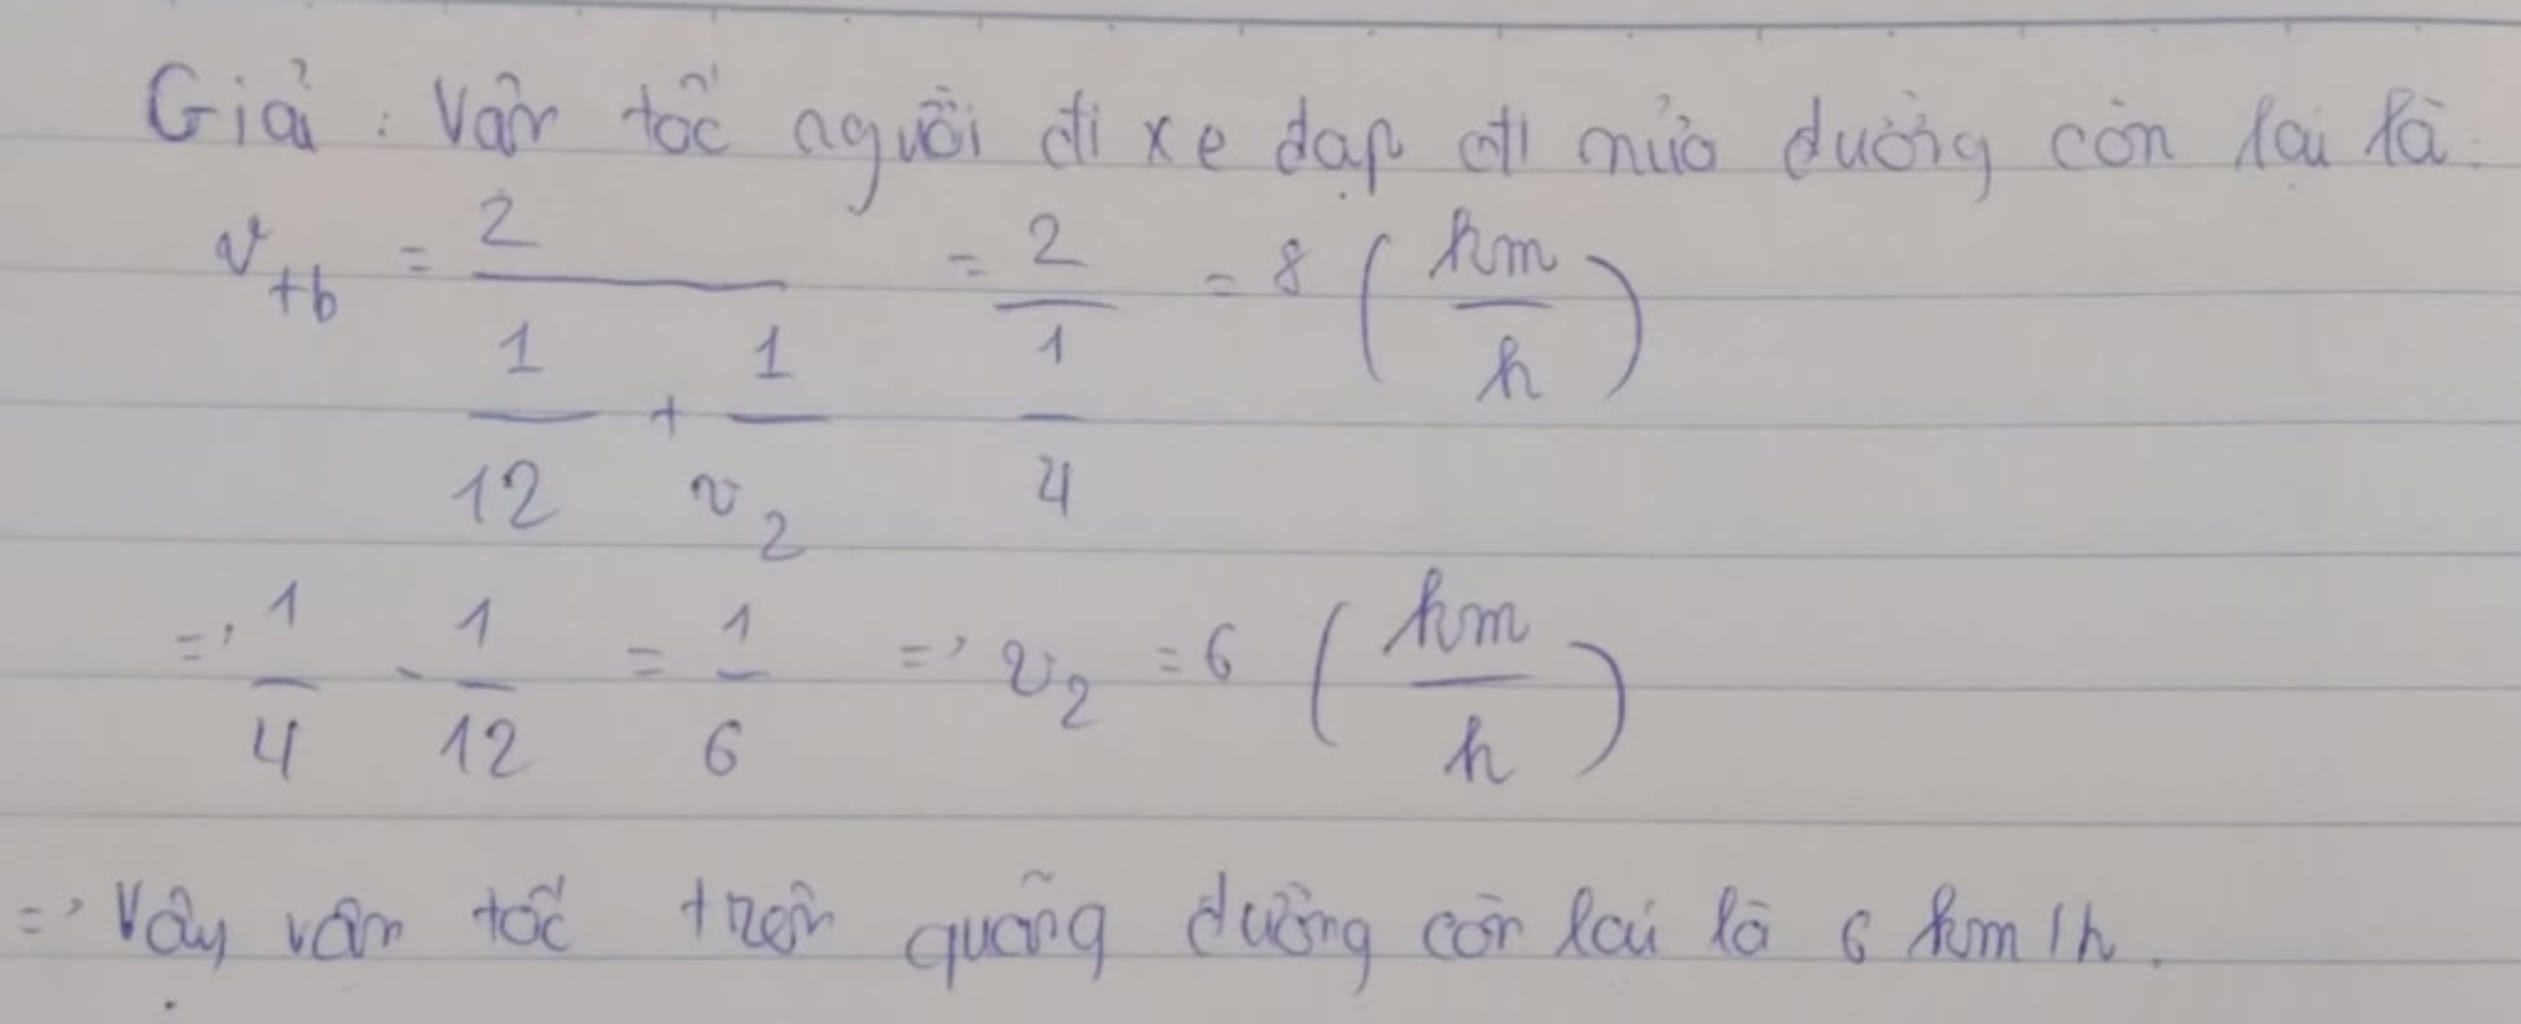 Giải : Vận tốc người đi xe đạp đi nửa đường còn lại là :
v_tb = 2 / (1/12 + 1/v_2) = 2 / (1/4) = 8 (km/h)
=> 1/4 - 1/12 = 1/6 => v_2 = 6 (km/h)
=> Vậy vận tốc trên quãng đường còn lại là 6 km/h.